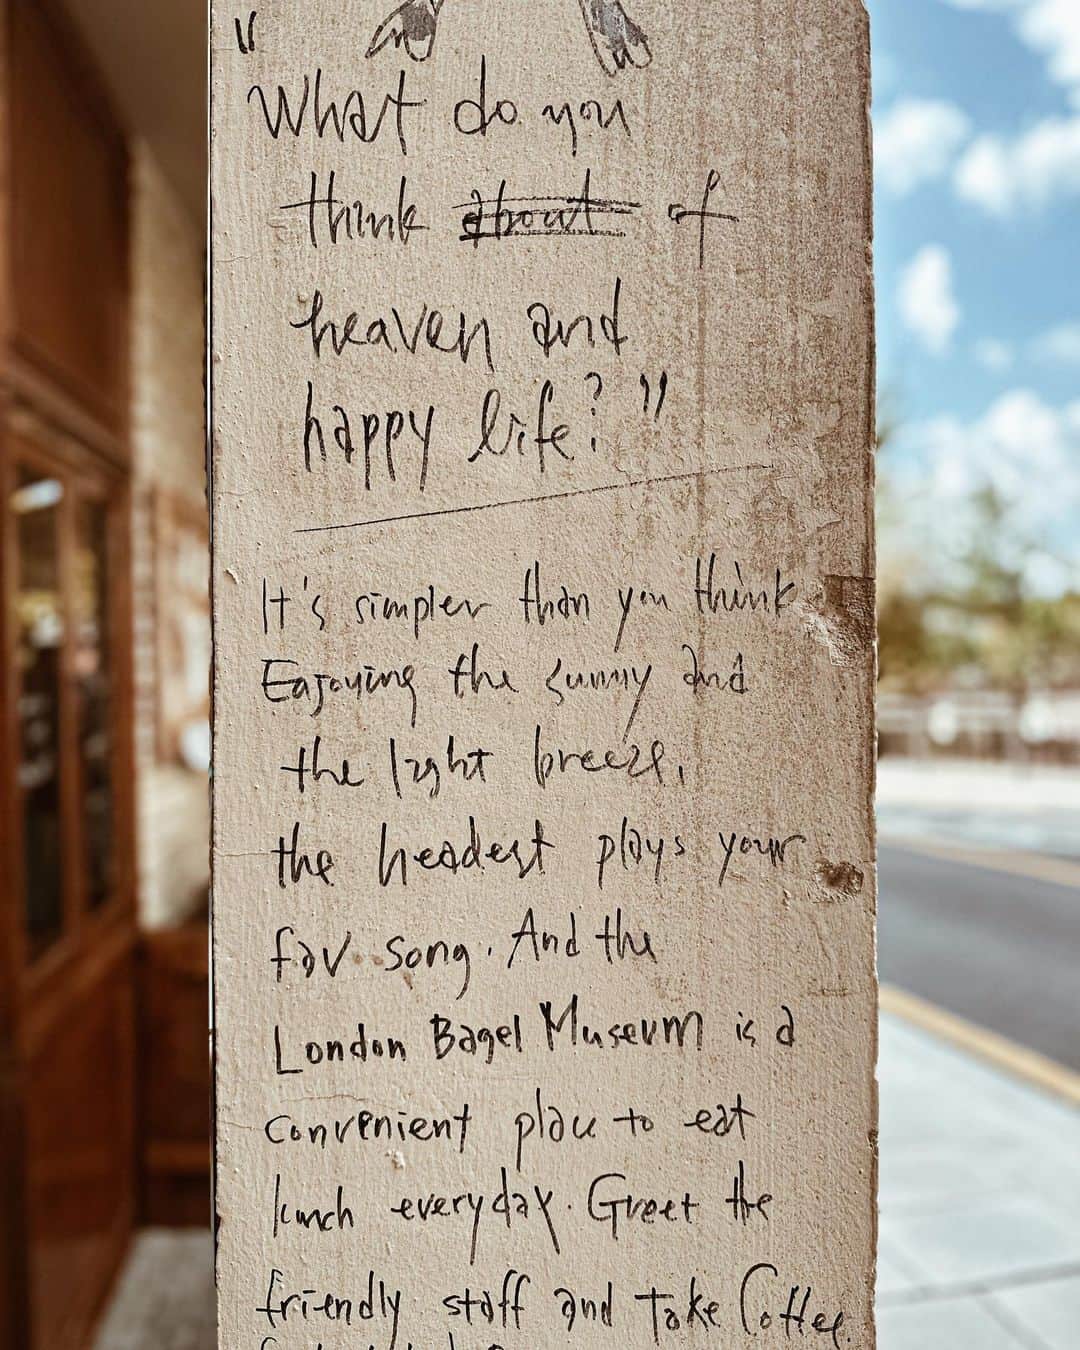 "
What do you
think about of
heaven and
happy life?"
It's simpler than you think
Enjoying the sunny and
the light breeze,
the headest plays your
fav song. And the
London Bagel Museum is a
convenient place to eat
lunch everyday. Greet the
friendly staff and take Coffee